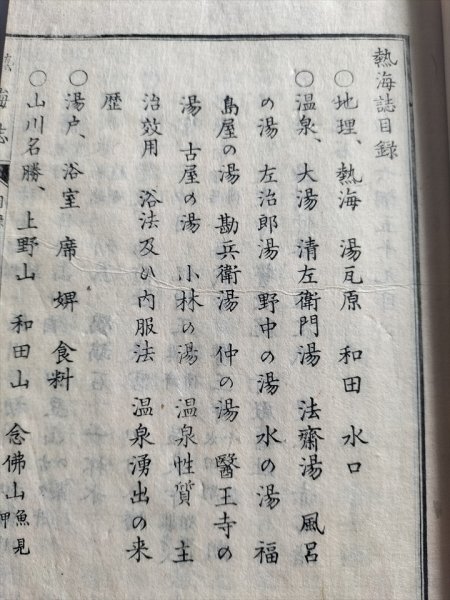 熱海誌目録
○地理、熱海 湯瓦原 和田 水口
○温泉、大湯 清左衛門湯 法齋湯 風呂
の湯 左治郎湯 野中の湯 水の湯 福
島屋の湯 勘兵衛湯 仲の湯 醫王寺の
湯 古屋の湯 小林の湯 温泉性質 主
治效用 浴法及い内服法 温泉湧出の来
歴
○湯户、浴室 席 婢 食料
○山川名勝、上野山 和田山 念佛山 魚見
岬
海誌